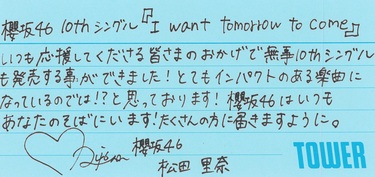 櫻坂46 10thシングル『I want tomorrow to come』
いつも応援してくださる皆さまのおかげで無事10thシングル
も発売する事ができました！とてもインパクトのある楽曲に
なっているのでは！？と思っております！櫻坂46はいつも
あなたのそばにいます！たくさんの方に届きますように。
櫻坂46
松田 里奈
TOWER